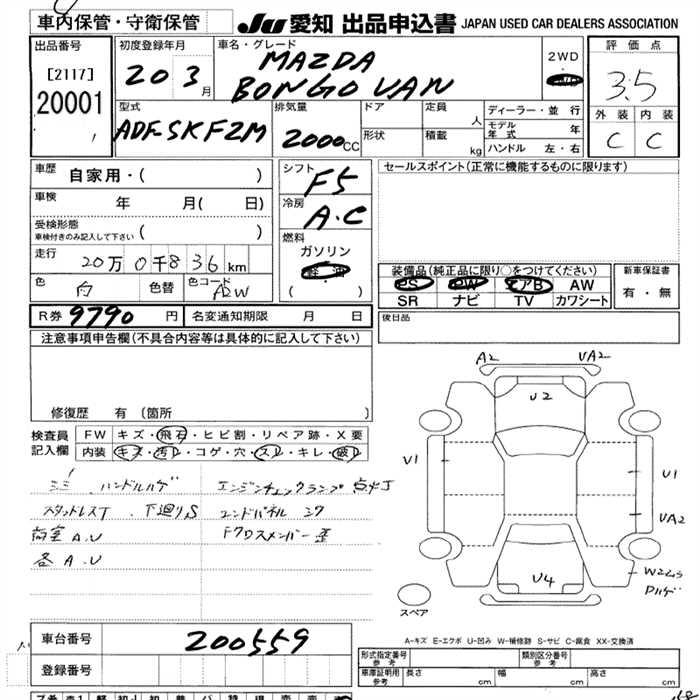 車内保管・守衛保管
JU 愛知 出品申込書 JAPAN USED CAR DEALERS ASSOCIATION
出品番号
[2117]
20001
初度登録年月
20 3月
車名・グレード
MAZDA
BONGO VAN
2WD
評価点
3.5
外装 内装
C C
型式
ADF-SKF2M
排気量
2000cc
ドア
形状
定員 人
積載 kg
ディーラー・並行
モデル年式 年
ハンドル 左・右
車歴
自家用・( )
車検 年 月( 日)
受検形態
車検付きのみ記入して下さい ( )
走行
20万0千836km
色 白
色替
色コード A2W
シフト
F5
冷房
A.C
燃料
ガソリン
軽油
( )
セールスポイント(正常に機能するものに限ります)
装備品(純正品に限り○をつけてください)
PS PW エアB AW
SR ナビ TV カワシート
新車保証書
有・無
R券 9790円
名変通知期限 月 日
後日品
注意事項申告欄(不具合内容等は具体的に記入して下さい)
修復歴 有 (箇所 )
検査員
記入欄
FW キズ・飛石・ヒビ割・リペア跡・X要
内装 キズ・汚れ・コゲ・穴・スレ・キレ・破れ
ハンドルハゲ エンジンチェックランプ点灯
スタッドレスT 下廻りS エンドパネル
荷室A.U Fクロスメンバー歪
各A.U
A2
UA2
U2
U1
U1
UA2
U4
スペア
A-キズ E-エクボ U-凹み W-補修跡 S-サビ C-腐食 XX-交換済
車台番号 200559
登録番号
形式指定番号 参考
類別区分番号 参考
車庫証明用 参考 長さ cm 幅 cm 高さ cm